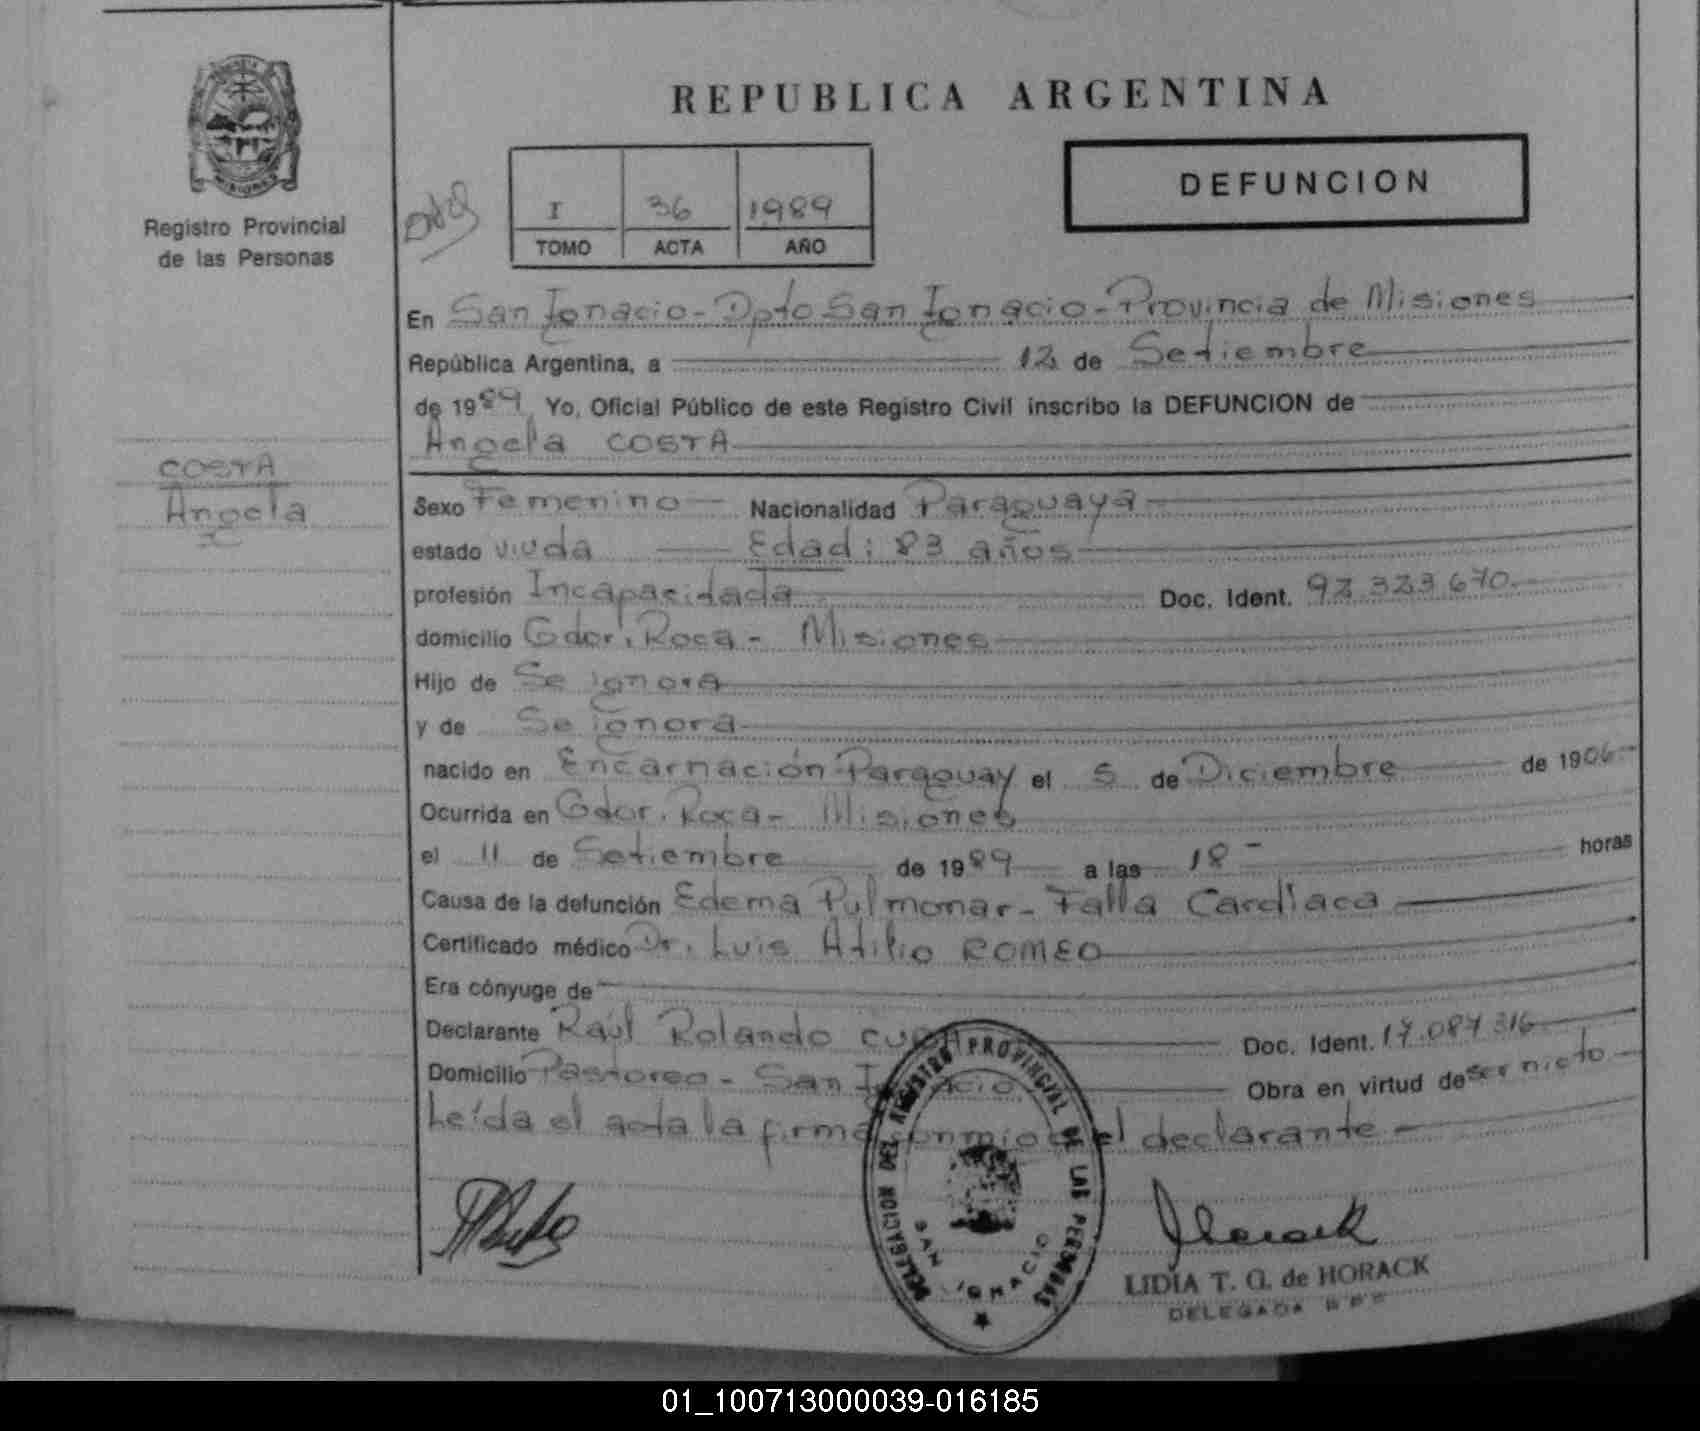 REPUBLICA ARGENTINA
MISIONES
Registro Provincial
de las Personas
DEFUNCION
I 36 1989
TOMO ACTA AÑO
En San Ignacio - Dpto San Ignacio - Provincia de Misiones
República Argentina, a 12 de Setiembre
de 1989 Yo, Oficial Público de este Registro Civil inscribo la DEFUNCION de
Angela COSTA
COSTA
Angela
Sexo Femenino Nacionalidad Paraguaya
estado viuda Edad: 83 años
profesión Incapacitada Doc. Ident. 92.323.670
domicilio Gdor. Roca - Misiones
Hijo de Se ignora
y de Se ignora
nacido en Encarnación-Paraguay el 5 de Diciembre de 1906
Ocurrida en Gdor. Roca - Misiones
el 11 de Setiembre de 1989 a las 18 horas
Causa de la defunción Edema Pulmonar - Falla Cardíaca
Certificado médico Dr. Luis Atilio ROMEO
Era cónyuge de
Declarante Raúl Rolando Doc. Ident. 17.087.316
Domicilio Pastoreo - San Ignacio Obra en virtud de ser nieto
Leída el acta la firma conmigo el declarante
DELEGACION DEL REGISTRO PROVINCIAL DE LAS PERSONAS
SAN IGNACIO
Horack
LIDIA T. G. de HORACK
DELEGADA
01_100713000039-016185